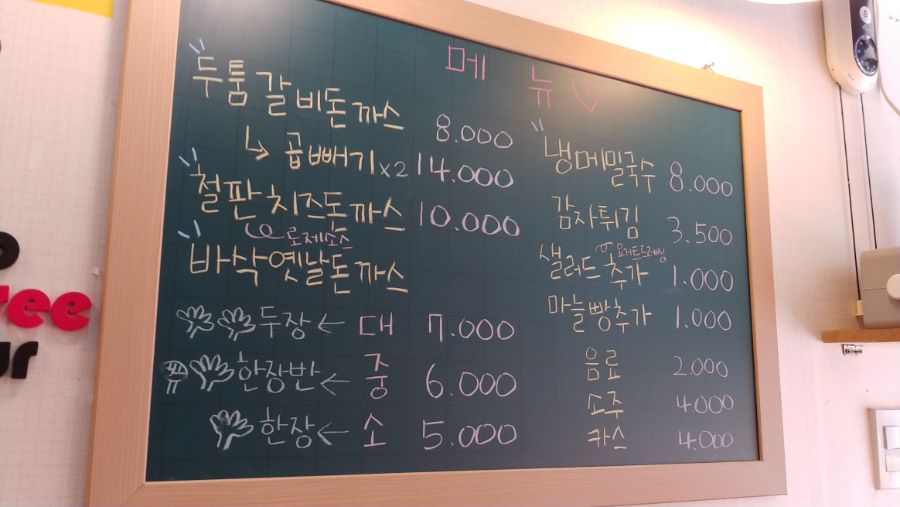 메 뉴
두툼갈비돈까스 8.000
↳ 곱빼기x2 14.000
철판치즈돈까스 10.000
로제소스
바삭옛날돈까스
두장 ← 대 7.000
한장반 ← 중 6.000
한장 ← 소 5.000
냉메밀국수 8.000
감자튀김 3.500
요거트드레싱
샐러드추가 1.000
마늘빵추가 1.000
음료 2.000
소주 4.000
카스 4.000
ree
ur